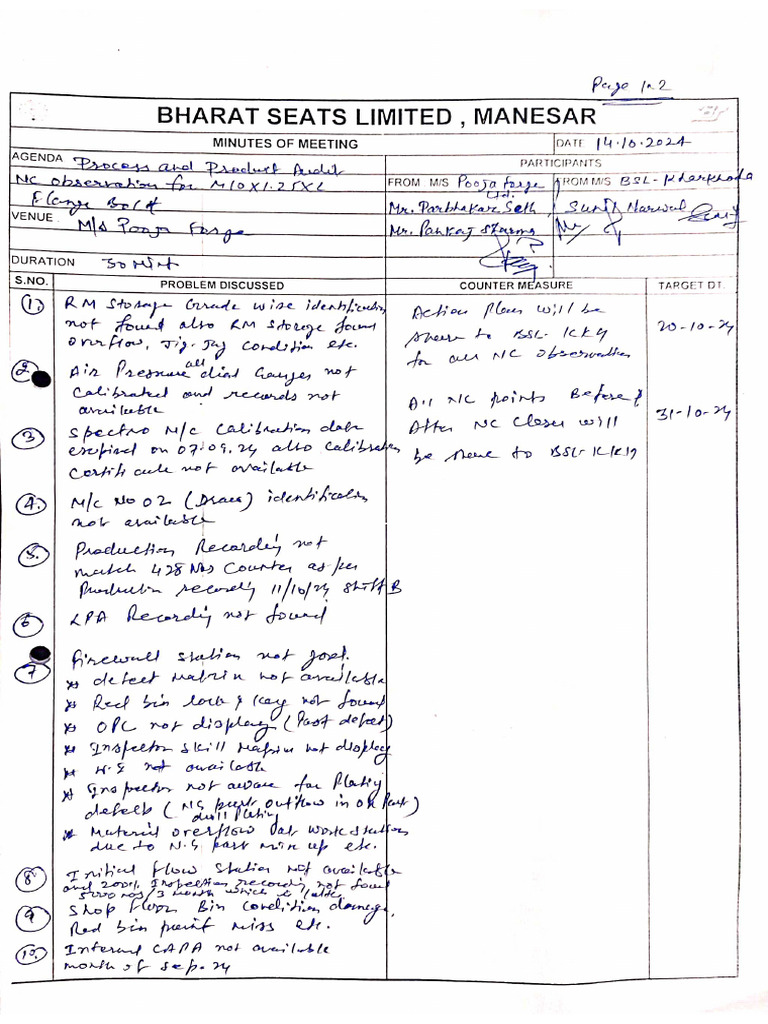 Page 1n2
BHARAT SEATS LIMITED , MANESAR
MINUTES OF MEETING
DATE 14.10.2024
AGENDA Process and Product Audit
NC observation for M10X1.25XL
Flange Bolt
PARTICIPANTS
FROM M/S Pooja Forge Ltd.
FROM M/S BSL-Kharkhoda
Mr. Parbhakar Seth,
Sunil Narwal
VENUE M/s Pooja Forge
Mr. Pankaj Sharma
DURATION 30 Mint
S.NO. PROBLEM DISCUSSED COUNTER MEASURE TARGET DT.
1. RM Storage Grade wise identification
not found also RM Storage found
overflow, Jig-Jag Condition etc.
Action Plan will be
share to BSL-KKH
for all NC observation
20-10-24
2. Air Pressure all dial Gauges not
Calibrated and records not
available
All NC points Before &
After NC Closer will
be share to BSL-KKH
31-10-24
3 Spectro M/c Calibration date
expired on 07.09.24 also Calibration
Certificate not available
4. M/c No 02 (Draw) identification
not available
5. Production Recording not
match 428 Nos Counter as per
Production recording 11/10/24 Shift B
6 LPA Recording not found
7 Firewall Station not good.
* defect Matrix not available
* Red bin lock & key not found
* OPC not display (Past defect)
* Inspector Skill Matrix not display
* W.I not available
* Inspector not aware for Plating
defects (NG part outflow in OK Part)
dull Plating
* Material overflow at work station
due to N.G part mix up etc.
8 Initial flow Station not available
and 200% Inspection recording not found
5000 nos/3 month which is later
9 Shop floor Bin Condition damage,
Red bin paint miss etc.
10. Internal CAPA not available
month of Sep-24